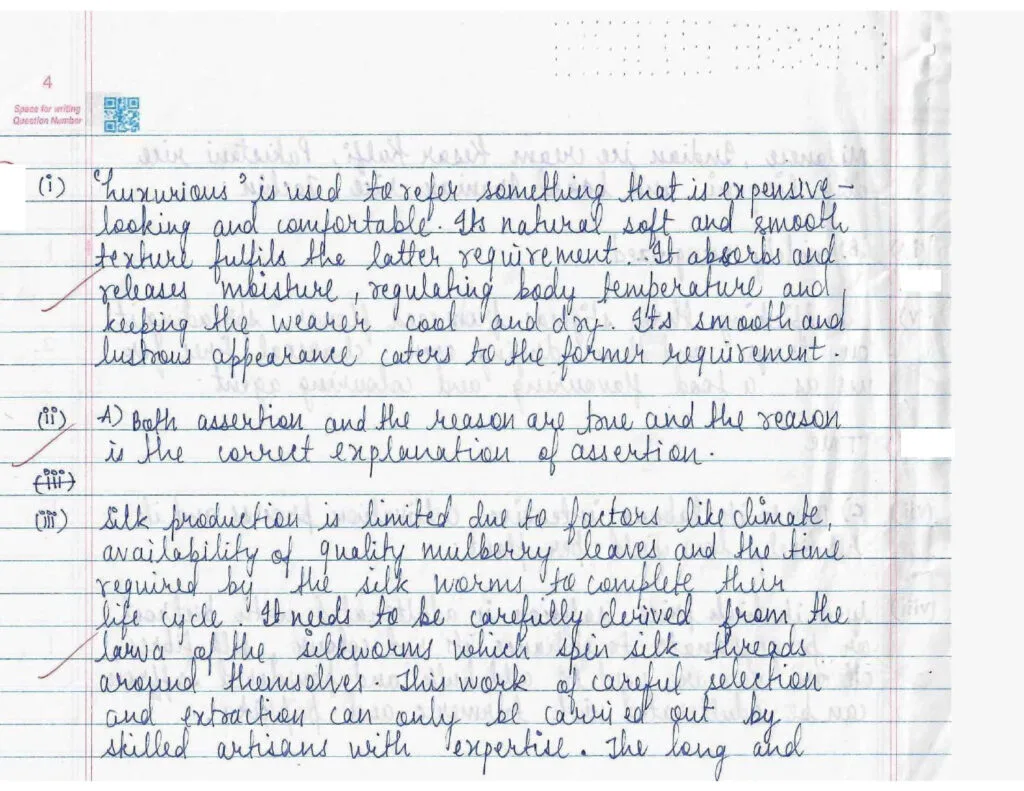 4
Space for writing
Question Number
(i) "Luxurious" is used to refer something that is expensive-
looking and comfortable. Its natural soft and smooth
texture fulfils the latter requirement. It absorbs and
releases moisture, regulating body temperature and
keeping the wearer cool and dry. Its smooth and
lustrous appearance caters to the former requirement.
(ii) A) Both assertion and the reason are true and the reason
is the correct explanation of assertion.
(iii)
(iii) Silk production is limited due to factors like climate,
availability of quality mulberry leaves and the time
required by the silk worms to complete their
life cycle. It needs to be carefully derived from the
larva of the silkworms which spin silk threads
around themselves. This work of careful selection
and extraction can only be carried out by
skilled artisans with expertise. The long and